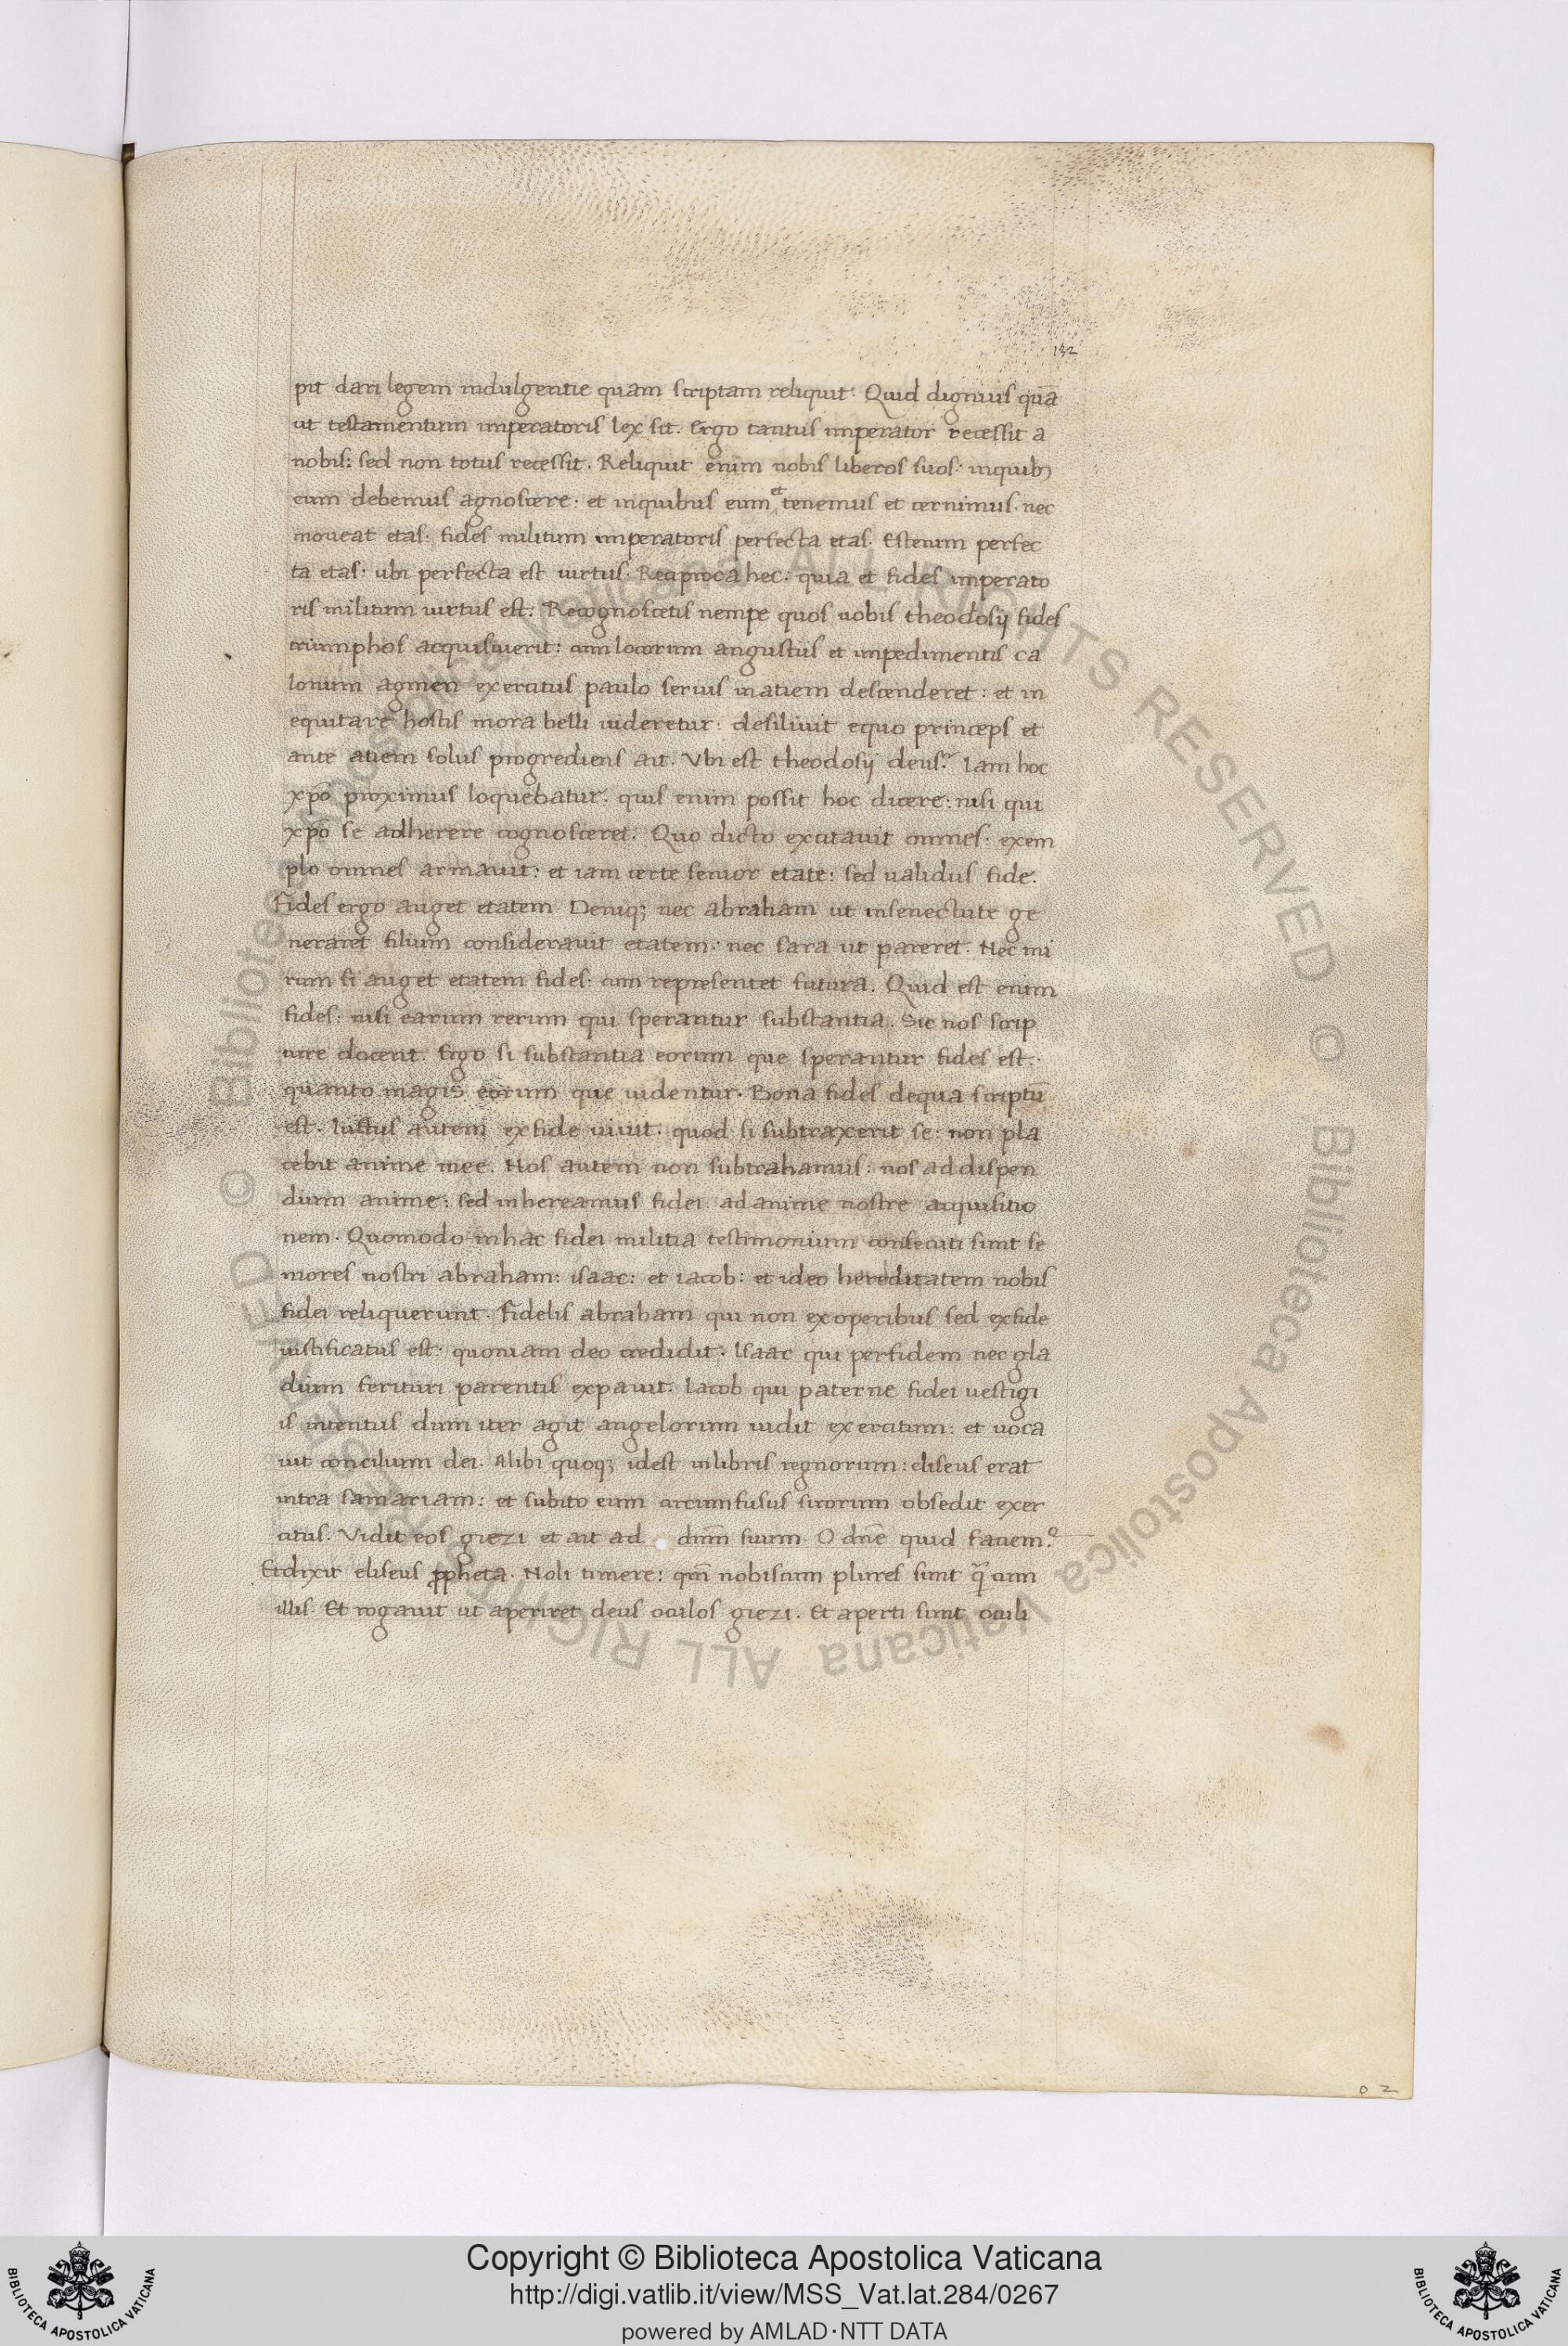 132
pit dari legem indulgentie quam scriptam reliquit. Quid dignius quā
ut testamentum imperatoris lex sit. Ergo tantus imperator recessit a
nobis: sed non totus recessit. Reliquit enim nobis liberos suos. inquibꝫ
eum debemus agnoscere. et inquibus eum et tenemus et cernimus. nec
moueat etas. fides militum imperatoris perfecta etas. Est enim perfec
ta etas. ubi perfecta est uirtus. Reciproca hec. quia et fides imperato
ris militum uirtus est. Recognoscetis nempe quos uobis theodosij fides
triumphos acquisiuerit: cum locorum angustiis et impedimentis ca
lonum agmen exercitus paulo serius inatiem descenderet: et in
equitare hostis mora belli uideretur: desiliuit equo princeps et
ante atiem solus progrediens ait. Vbi est theodosij deus? Iam hoc
xp̄o proximus loquebatur. quis enim possit hoc dicere: nisi qui
xp̄o se adherere cognosceret. Quo dicto excitauit omnes. exem
plo omnes armauit: et iam certe senior etate: sed ualidus fide.
Fides ergo auget etatem Deniqꝫ nec abraham ut insenectute ge
neraret filium considerauit etatem. nec sara ut pareret. Nec mi
rum si auget etatem fides: cum representet futura. Quid est enim
fides: nisi earum rerum qui sperantur substantia. Sic nos scrip
ture docent. Ergo si substantia eorum que sperantur fides est.
quanto magis eorum que uidentur. Bona fides dequa scriptū
est. Iustus autem exfide uiuit. quod si subtraxerit se: non pla
cebit anime mee. Nos autem non subtrahamus: nos addispen
dium anime: sed inhereamus fidei. adanime nostre acquisitio
nem. Quomodo inhac fidei militia testimonium consecuti sunt se
niores nostri abraham: isaac: et iacob: et ideo hereditatem nobis
fidei reliquerunt. Fidelis abraham qui non exoperibus sed exfide
iustificatus est. quoniam deo credidit. Isaac qui perfidem nec gla
dium ferituri parentis expauit. Iacob qui paterne fidei uestigi
is intentus dum iter agit angelorum uidit exercitum: et uoca
uit concilium dei. Alibi quoqꝫ idest inlibris regnorum: eliseus erat
intra samariam: et subito eum circumfusus sirorum obsedit exer
citus. Vidit eos giezi et ait ad dn̄m suum. O dn̄e quid faciem?
Etdixit eliseus ꝓpheta. Noli timere: qm̄ nobiscum plures sunt q̄ cum
illis. Et rogauit ut aperiret deus oculos giezi. Et aperti sunt oculi
o 2
© Biblioteca Apostolica Vaticana ALL RIGHTS RESERVED © Biblioteca Apostolica Vaticana ALL RIGHTS RESERVED
Copyright © Biblioteca Apostolica Vaticana
http://digi.vatlib.it/view/MSS_Vat.lat.284/0267
powered by AMLAD·NTT DATA
BIBLIOTECA APOSTOLICA VATICANA
BIBLIOTECA APOSTOLICA VATICANA